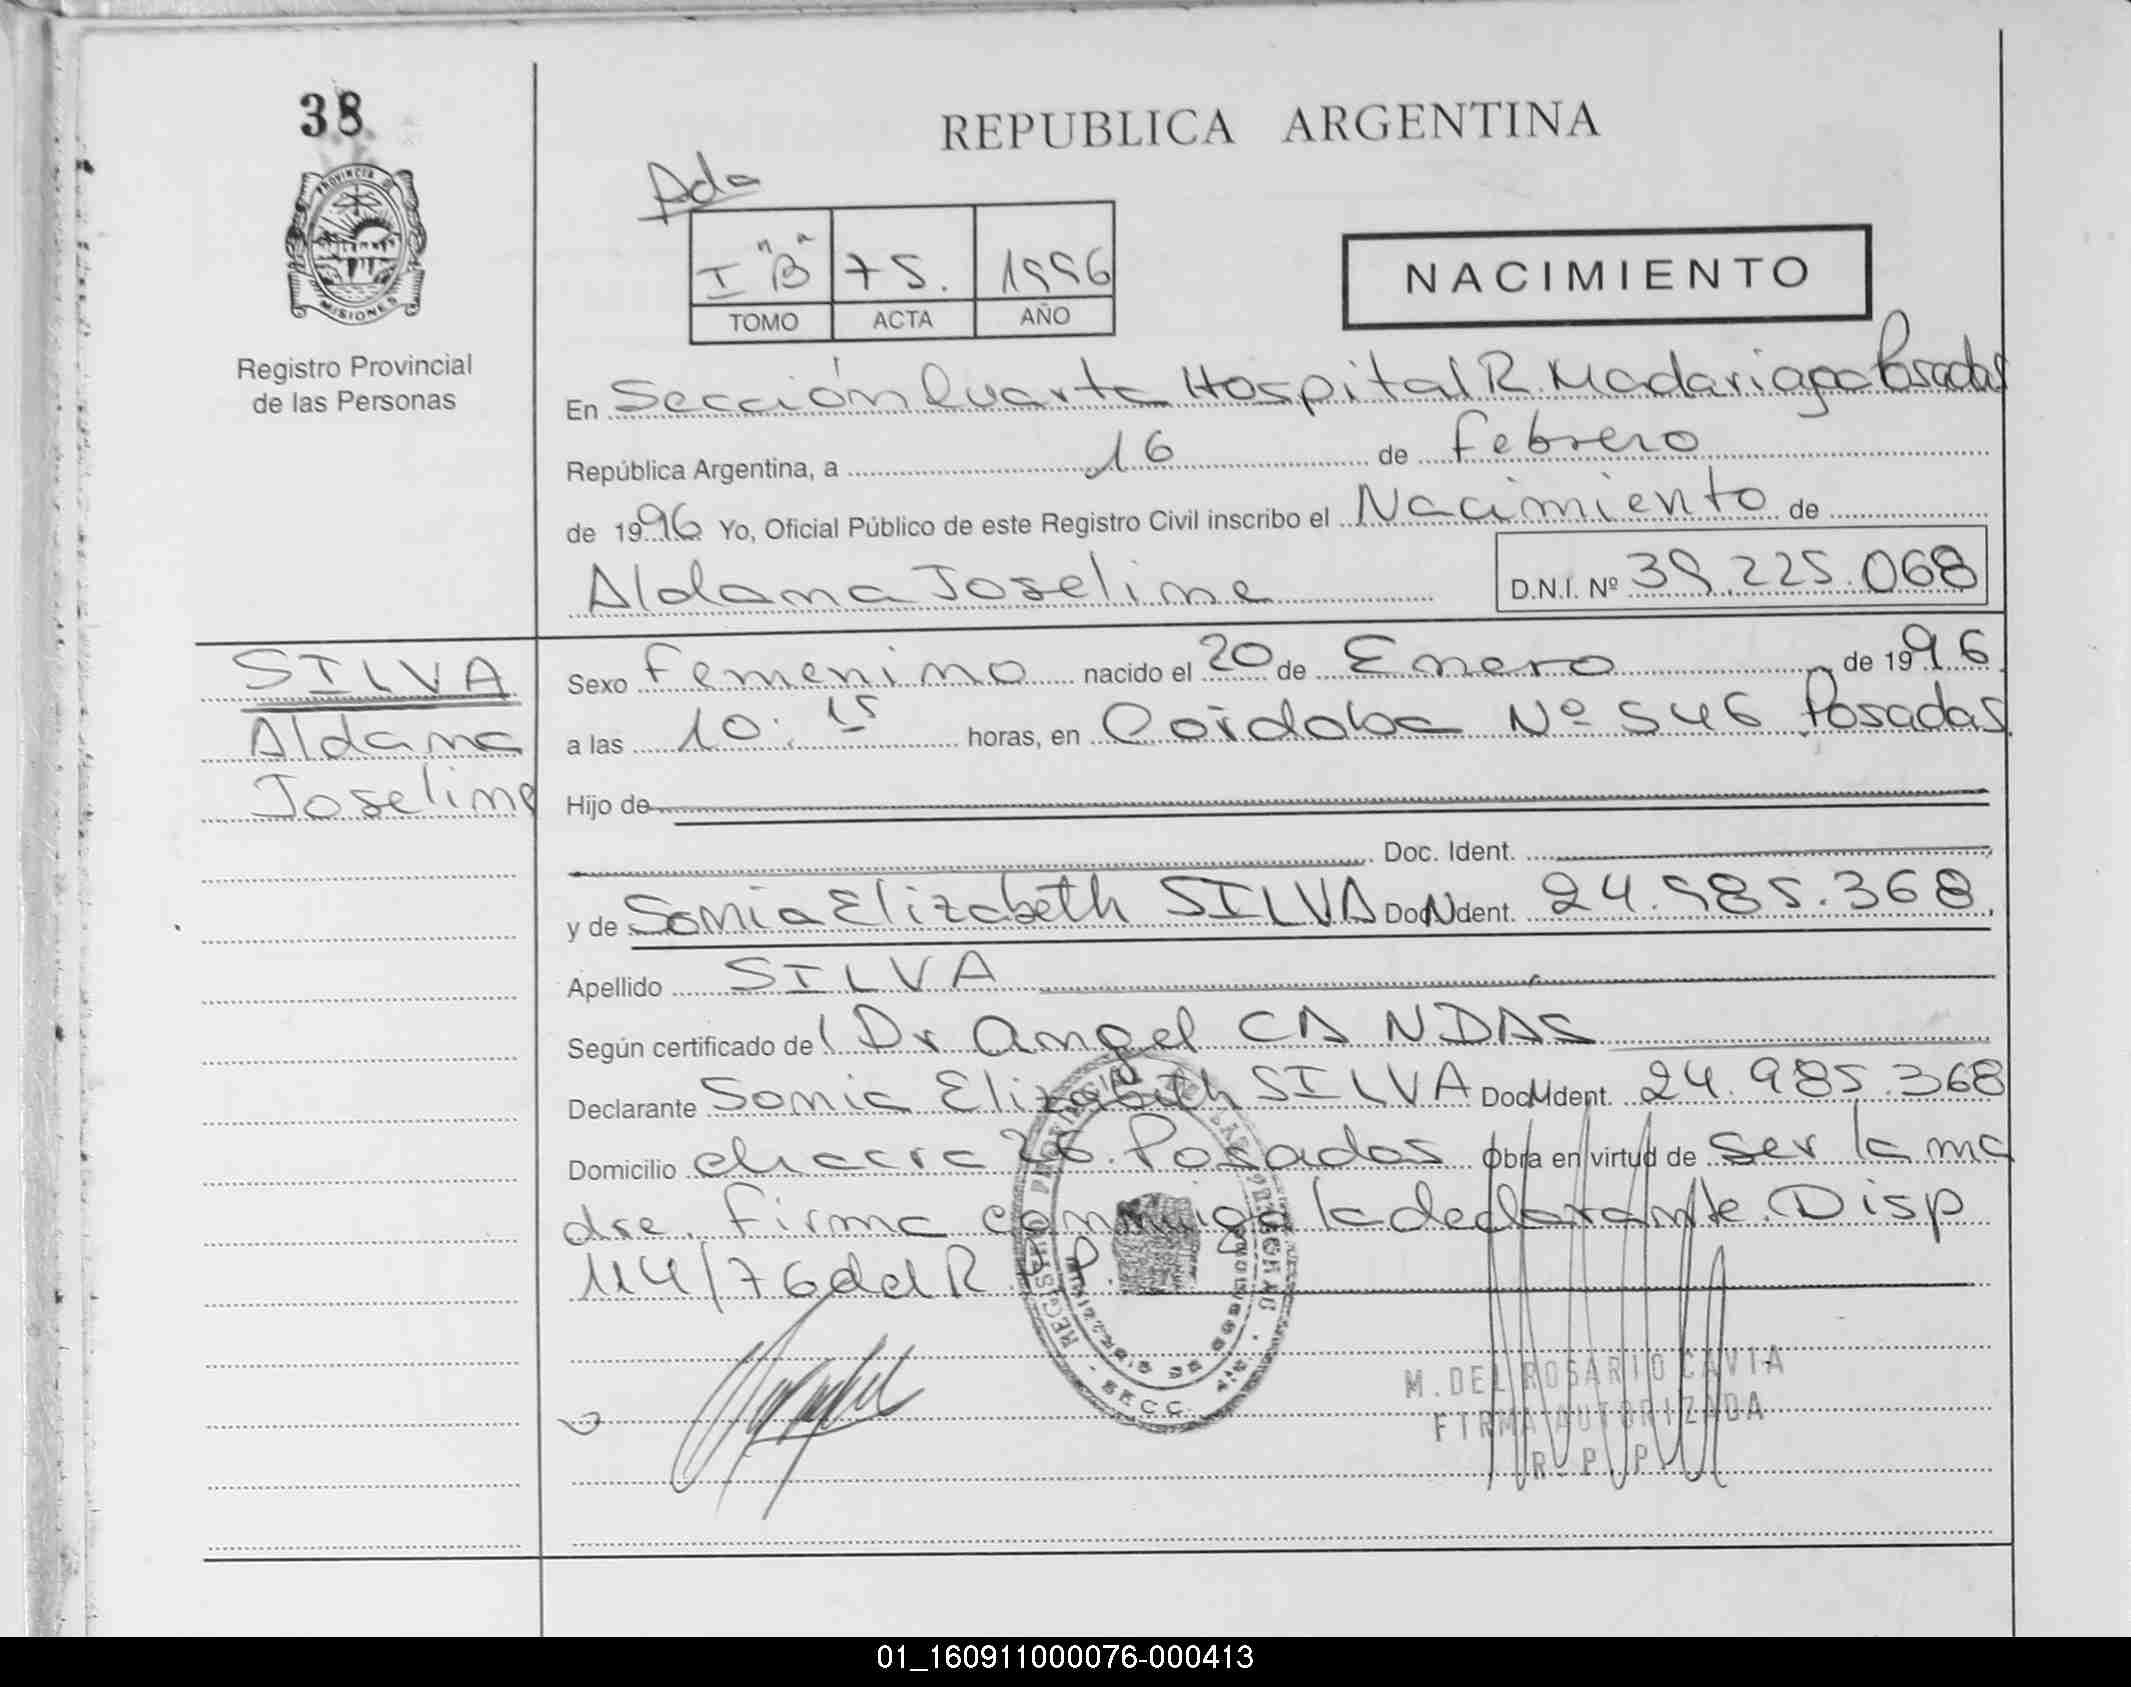 38
PROVINCIA DE
MISIONES
Registro Provincial
de las Personas
REPUBLICA ARGENTINA
Ada
I "B" 75. 1996
TOMO ACTA AÑO
NACIMIENTO
En Sección Cuarta Hospital R. Madariaga Posadas
República Argentina, a 16 de Febrero
de 1996 Yo, Oficial Público de este Registro Civil inscribo el Nacimiento de
Aldana Joseline D.N.I. Nº 39.225.068
SILVA
Aldana
Joseline
Sexo Femenino nacido el 20 de Enero de 1996
a las 10:15 horas, en Cordoba Nº 546 Posadas
Hijo de
Doc. Ident.
y de Sonia Elizabeth SILVA Doc. Ident. 24.985.368
Apellido SILVA
Según certificado del Dr Angel CANDAS
Declarante Sonia Elizabeth SILVA Doc. Ident. 24.985.368
Domicilio chacra 26. Posadas Obra en virtud de ser la ma
dre. Firma conmigo la declarante. Disp
114/76 del R.P.P.
SECC.
M. DEL ROSARIO CAVIA
FIRMA AUTORIZADA
R. P. P.
01_160911000076-000413